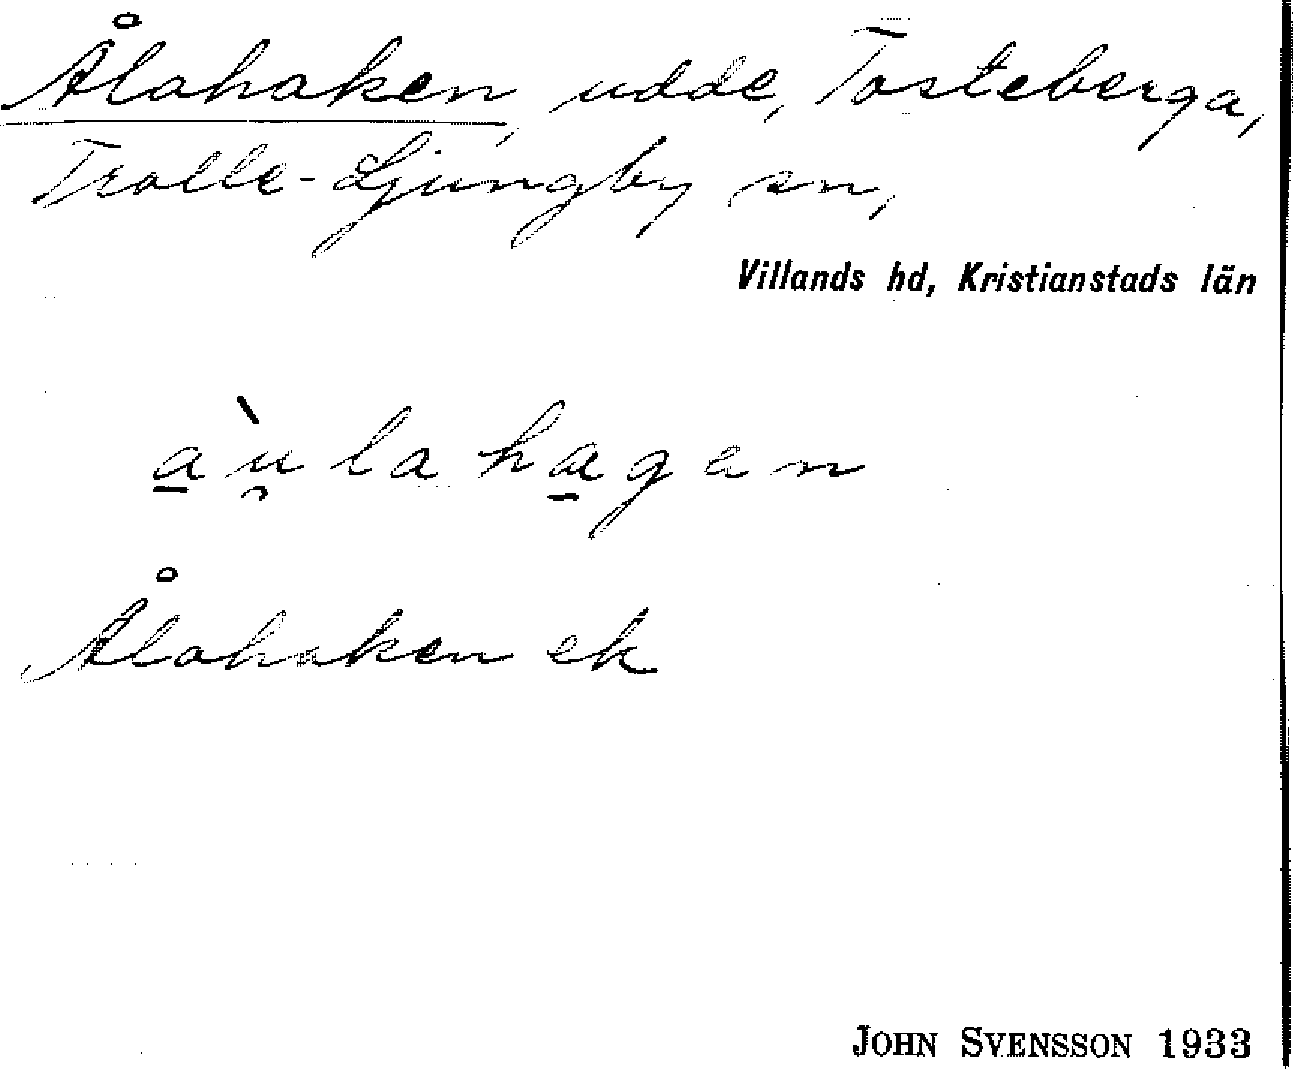 Ålahaken, udde, Tosteberga,
Trolle-Ljungby sn,
Villands hd, Kristianstads län
a̠ù̯laha̠gen
Ålahaken ek
JOHN SVENSSON 1933